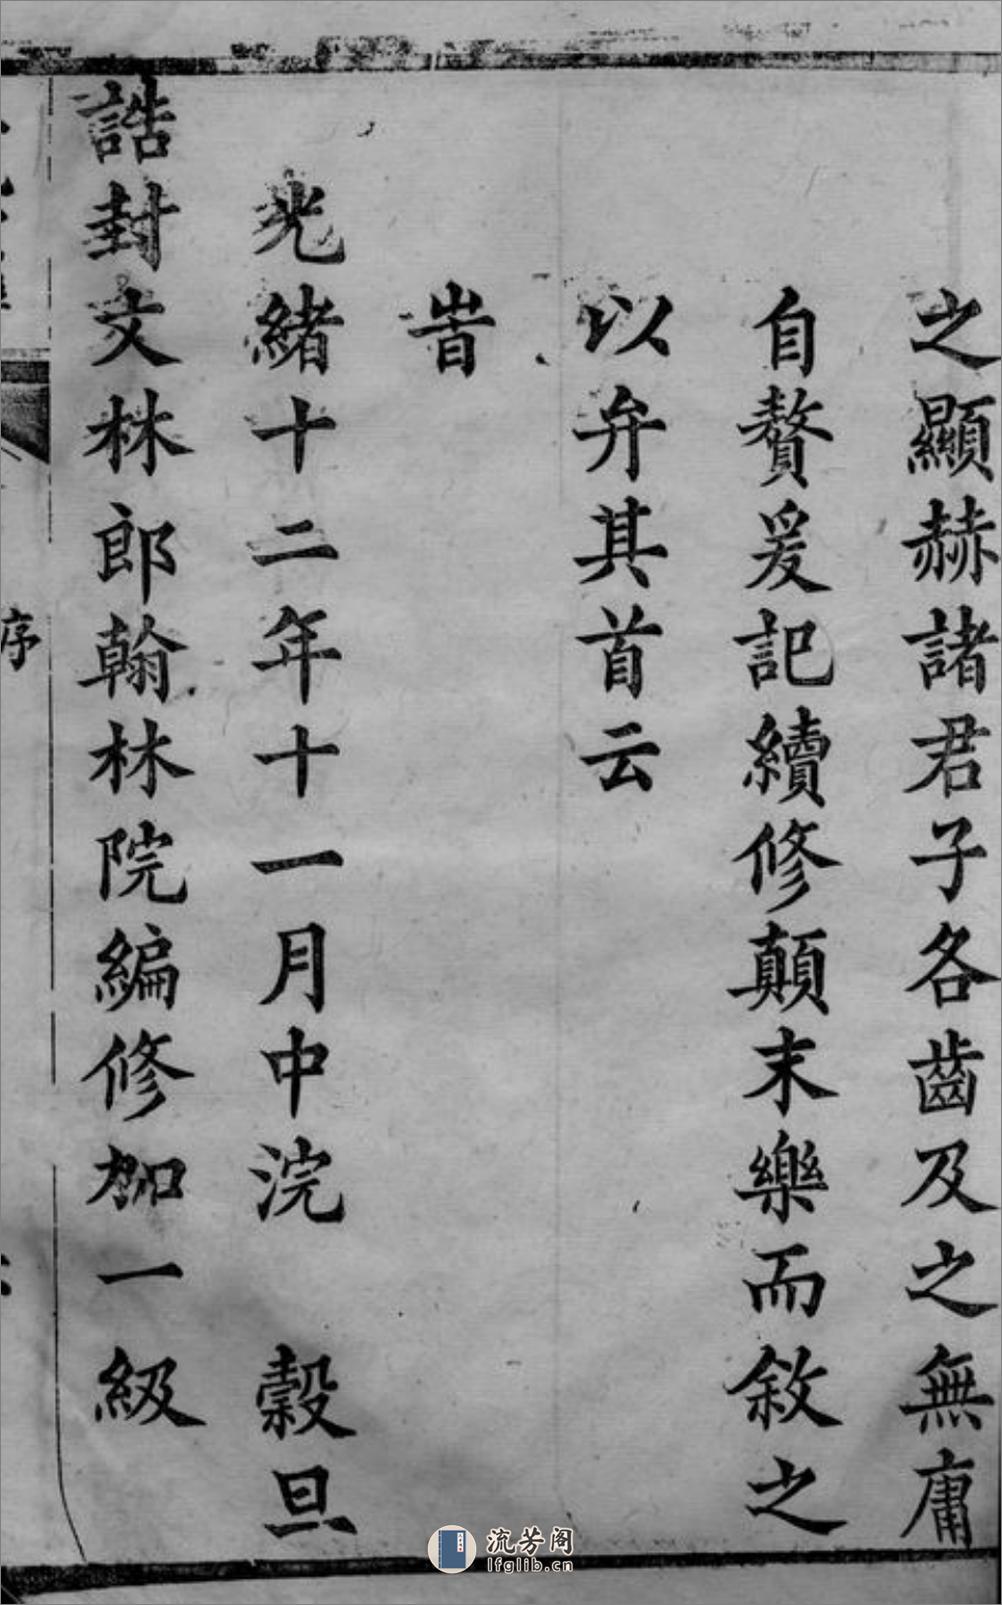 之顯赫諸君子各齒及之無庸
自贅爰記續修顛末樂而敘之
以弁其首云
旹
光緒十二年十一月中浣 穀旦
誥封文林郎翰林院編修加一級
序
流芳阁
lfglib.cn